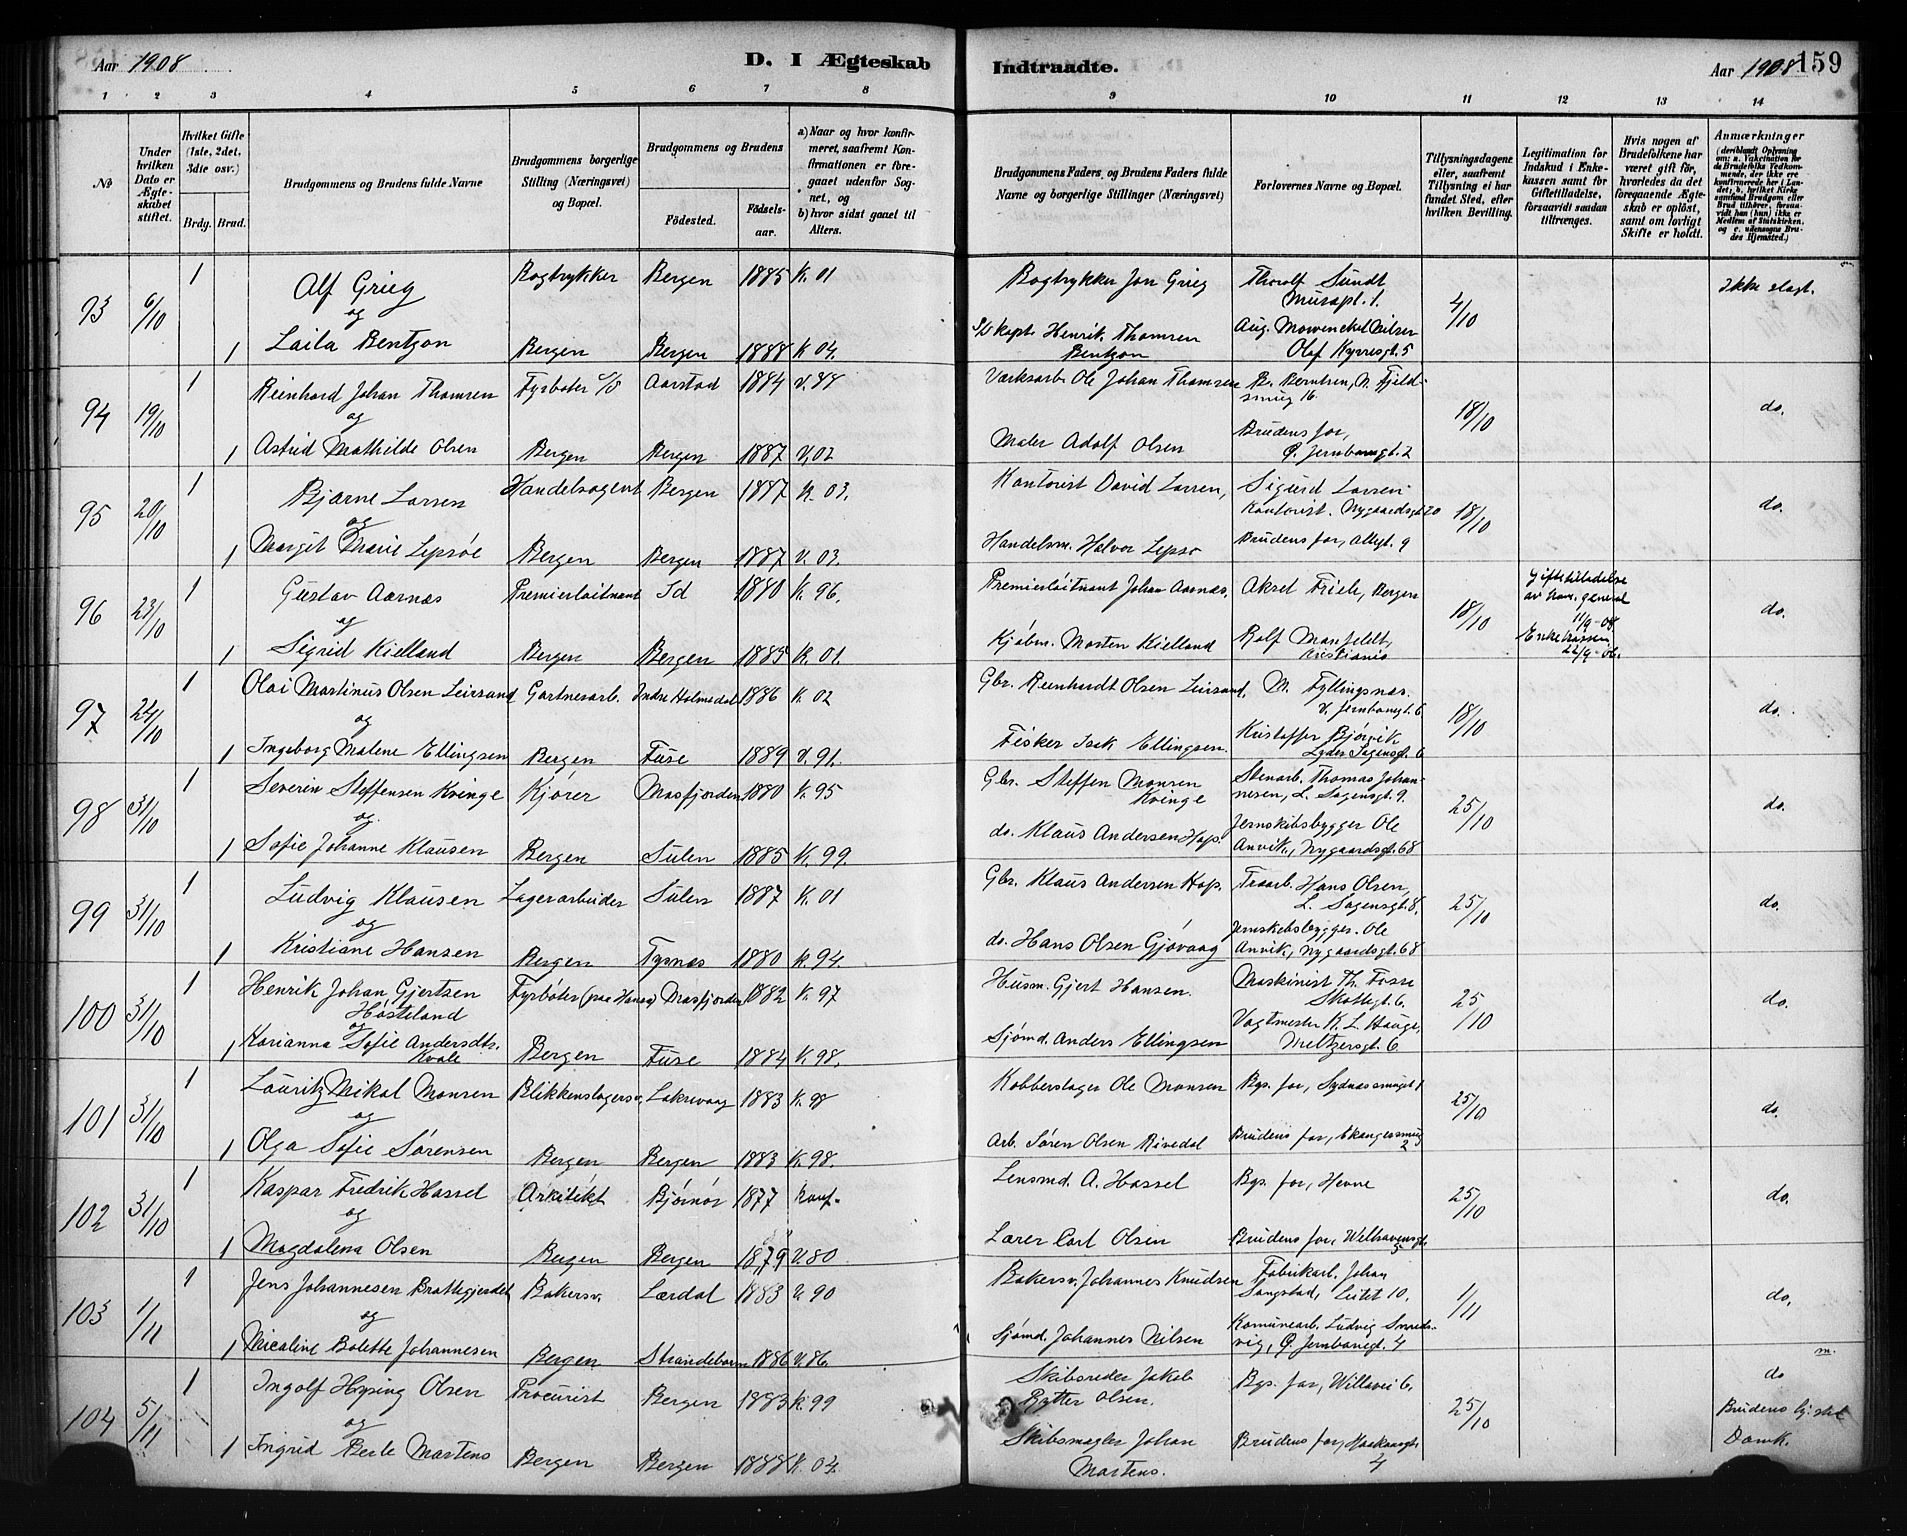 Aar 1908
D. I Ægteskab
Indtraadte.
Aar 1908 159
1 2 3 4 5 6 7 8
9 10 11 12 13 14
№
Under hvilken Dato er Ægteskabet stiftet.
Hvilket Gifte (1ste, 2det, 3die osv.)
Brdg. Brud.
Brudgommens og Brudens fulde Navne
Brudgommens borgerlige Stilling (Næringsvei) og Bopæl.
Brudgommens og Brudens
Fødested.
Fødselsaar.
a) Naar og hvor konfirmeret, saafremt Konfirmationen er foregaaet udenfor Sognet, og
b) hvor sidst gaaet til Alters.
Brudgommens Faders og Brudens Faders fulde Navne og borgerlige Stillinger (Næringsvei)
Forlovernes Navne og Bopæl.
Tillysningsdagene eller, saafremt Tillysning ei har fundet Sted, efter hvilken Bevilling.
Legitimation for Indskud i Enkekassen samt for Giftetilladelse, forsaavidt saadan tiltrænges.
Hvis nogen af Brudefolkene har været gift før, hvorledes da det foregaaende Ægteskab er opløst, samt om lovligt Skifte er holdt.
Anmærkninger (deriblandt Oplysning om: a. Vakcination for de Brudefolks Vedkommende, der ikke ere konfirmerede her i Landet; b. hvilket Kirkesamfund Brudgom eller Brud tilhører, forsaavidt han (hun) ikke er Medlem af Statskirken, og c. udensogns Brudes Hjemsted.)
93 6/10 1 Alf Grieg Bogtrykker Bergen 1885 K. 01 Bogtrykker Jon Grieg Thorolf Sundt 4/10 Ikke slægt.
og Muséplt. 1.
1 Laila Bentzon Bergen Bergen 1888 K 04. S/S kapt. Henrik Thomsen Bentzon Aug. Mowinckel Nilsen Olaf Kyrresgt. 5
94 19/10 1 Reinhard Johan Thomsen Fyrbøter Aarstad 1884 Verksarb. Ole Johan Thomsen B. Berntsen, N. Fjeldsmug 16. 18/10 do.
og
1 Astrid Mathilde Olsen Bergen Bergen 1887 V. 02 Maler Adolf Olsen Brudens far, Ø. Jernbanegt. 2
95 20/10 1 Bjarne Larsen Handelsagent Bergen 1887 K. 03. Kontorist David Larsen, Sigurd Larsen Kontorist. Nygaardsgt 20 18/10 do.
og
1 Margit Marie Lepsøe Bergen Bergen 1887 V. 03. Handelsm. Halvor Lepsø Brudens far, Allégt. 9
96 23/10 1 Gustav Aarnæs Premierløitnant Id 1880 K. 96. Premierløitnant Johan Aarnæs. Aksel Friele, Bergen 18/10 Giftetilladelse av kom. general 11/9-08 do.
og
1 Sigrid Kielland Bergen Bergen 1883 K. 01. Kjøbm. Morten Kielland Rolf Mansfeldt, Kristiania Enkekassen 22/9-06.
97 24/10 1 Olai Martinus Olsen Leirsand Gartnerarb. Indre Holmedal 1886 K. 02 Gbr. Reinhardt Olsen Leirsand, M. Fyllingsnæs. V. Jernbanegt. 6 18/10 do.
og
1 Ingeborg Malene Ellingsen Bergen Fuse 1889 V. 91. Fisker Isak Ellingsen. Kristoffer Bjørvik Lyder Sagensgt. 6
98 31/10 1 Severin Steffensen Kvinge Kjører Masfjorden 1880 K. 95 Gbr. Steffen Monsen Kvinge Stenarb. Thomas Johannesen, L. Sagensgt. 9. 25/10 do.
og
1 Sofie Johanne Klausen Bergen Sulen 1885 K. 99. do. Klaus Andersen Hop. Jernskibsbygger Ole Anvik, Nygaardsgt. 68
99 31/10 1 Ludvig Klausen Lagerarbeider Sulen 1887 K. 01 Gbr. Klaus Andersen Hop. Træarb. Hans Olsen, L. Sagensgt. 8. 25/10 do.
og
1 Kristiane Hansen Bergen Tysnæs 1880 K. 94. do. Hans Olsen Gjøvaag Jernskibsbygger. Ole Anvik, Nygaardsgt. 68
100 31/10 1 Henrik Johan Gjertsen Høsteland Fyrbøter Masfjorden 1882 K. 97 Husm. Gjert Hansen. Maskinist Th. Fosse Skottegt. 6. 25/10 do.
og
1 Karianna Sofie Andersdtr. Kvale Bergen Fuse 1884 K. 98. Sjømd. Anders Ellingsen Vagtmester K. L. Hauge, Meltzersgt. 6
101 31/10 1 Lauritz Mikal Monsen Blikkenslagersv. Laksevaag 1883 K. 98 Kobberslager Ole Monsen Bgs. far, Sydnæssmuget 1 25/10 do.
og
1 Olga Sofie Sørensen Bergen Bergen 1883 K. 98. Arb. Søren Olsen Rivedal Brudens far, Skangersmug 2
102 31/10 1 Kaspar Fredrik Hassel Arkitekt Bjørnør 1877 Konf. Lensmd. A. Hassel Bgs. far, Hevne 25/10 do.
og
1 Magdalena Olsen Bergen Bergen 1879 V. 80 Lærer Carl Olsen Brudens far, Welhavensgt.
103 1/11 1 Jens Johannesen Brattegjerdet Bakersv. Lærdal 1883 V. 90 Bakersv. Johannes Knudsen Fabrikarb. Johan Sangstad, Leitet 10. 1/11 do.
og
1 Micaline Bolette Johannesen Bergen Strandebarm 1886 V. 86. Sjømd. Johannes Nilsen Komunearb. Ludvig Smedsvig, Ø. Jernbanegt. 4
104 5/11 1 Ingolf Hysing Olsen Procurist Bergen 1883 K. 99 Skibsreder Jakob Rytter Olsen. Bgs. far, Villavei 6. 25/10 do
og
1 Ingrid Berle Martens Bergen Bergen 1888 K. 04. Skibsmægler Johan Martens. Brudens far, Haakonsgt. 4 Brudens hj. st. Domk.
m.